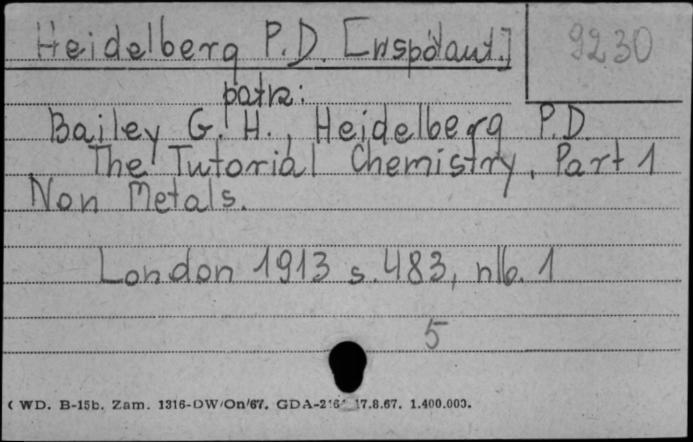 Heidelberg P.D. [współaut.]
9230
patrz:
Bailey G. H., Heidelberg P.D.
The Tutorial Chemistry, Part 1
Non Metals.
London 1913 s. 483, nlb. 1
5
WD. B-15b. Zam. 1316-DW/On/67. GDA- 17.8.67. 1.400.000.